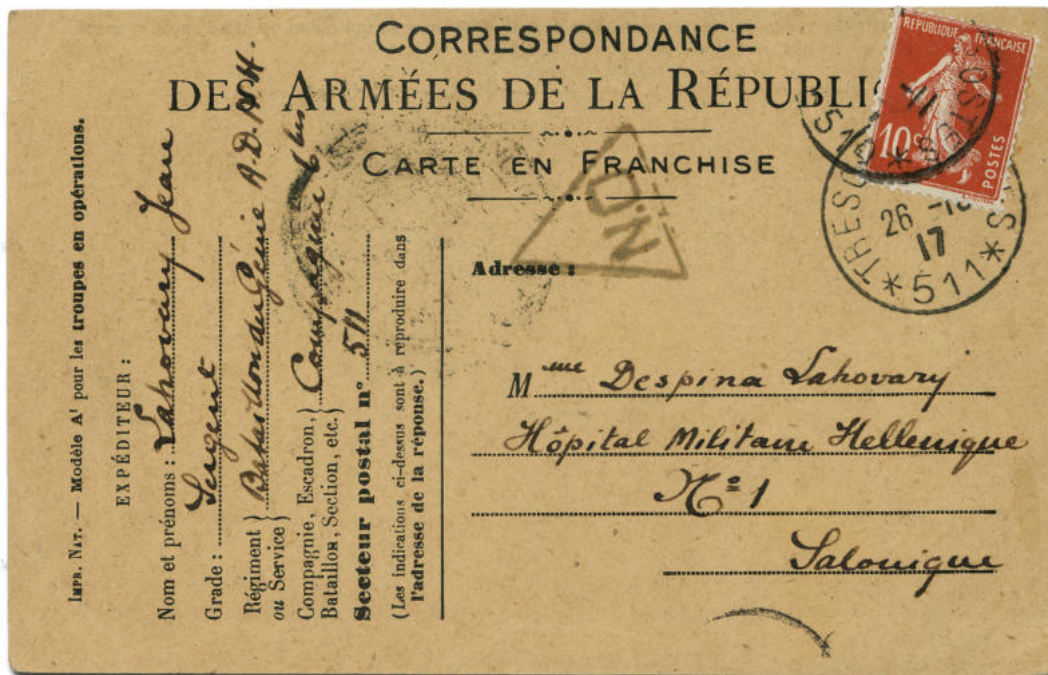 CORRESPONDANCE
DES ARMÉES DE LA RÉPUBLI
CARTE EN FRANCHISE
REPUBLIQUE FRANÇAISE
10
POSTES
TRESOR
26 -10
17
*511*
ΔΝ
Impr. Nat. — Modèle A¹ pour les troupes en opérations.
EXPÉDITEUR :
Nom et prénoms : Lahovary Jean
Grade : Sergent
Régiment ou Service } Bataillon du Génie A.D.
Compagnie, Escadron, Bataillon, Section, etc. } Compagnie 6 bis
Secteur postal n° 511
(Les indications ci-dessus sont à reproduire dans
l'adresse de la réponse.)
Adresse :
Mme Despina Lahovary
Hôpital Militaire Hellenique
No 1
Salonique